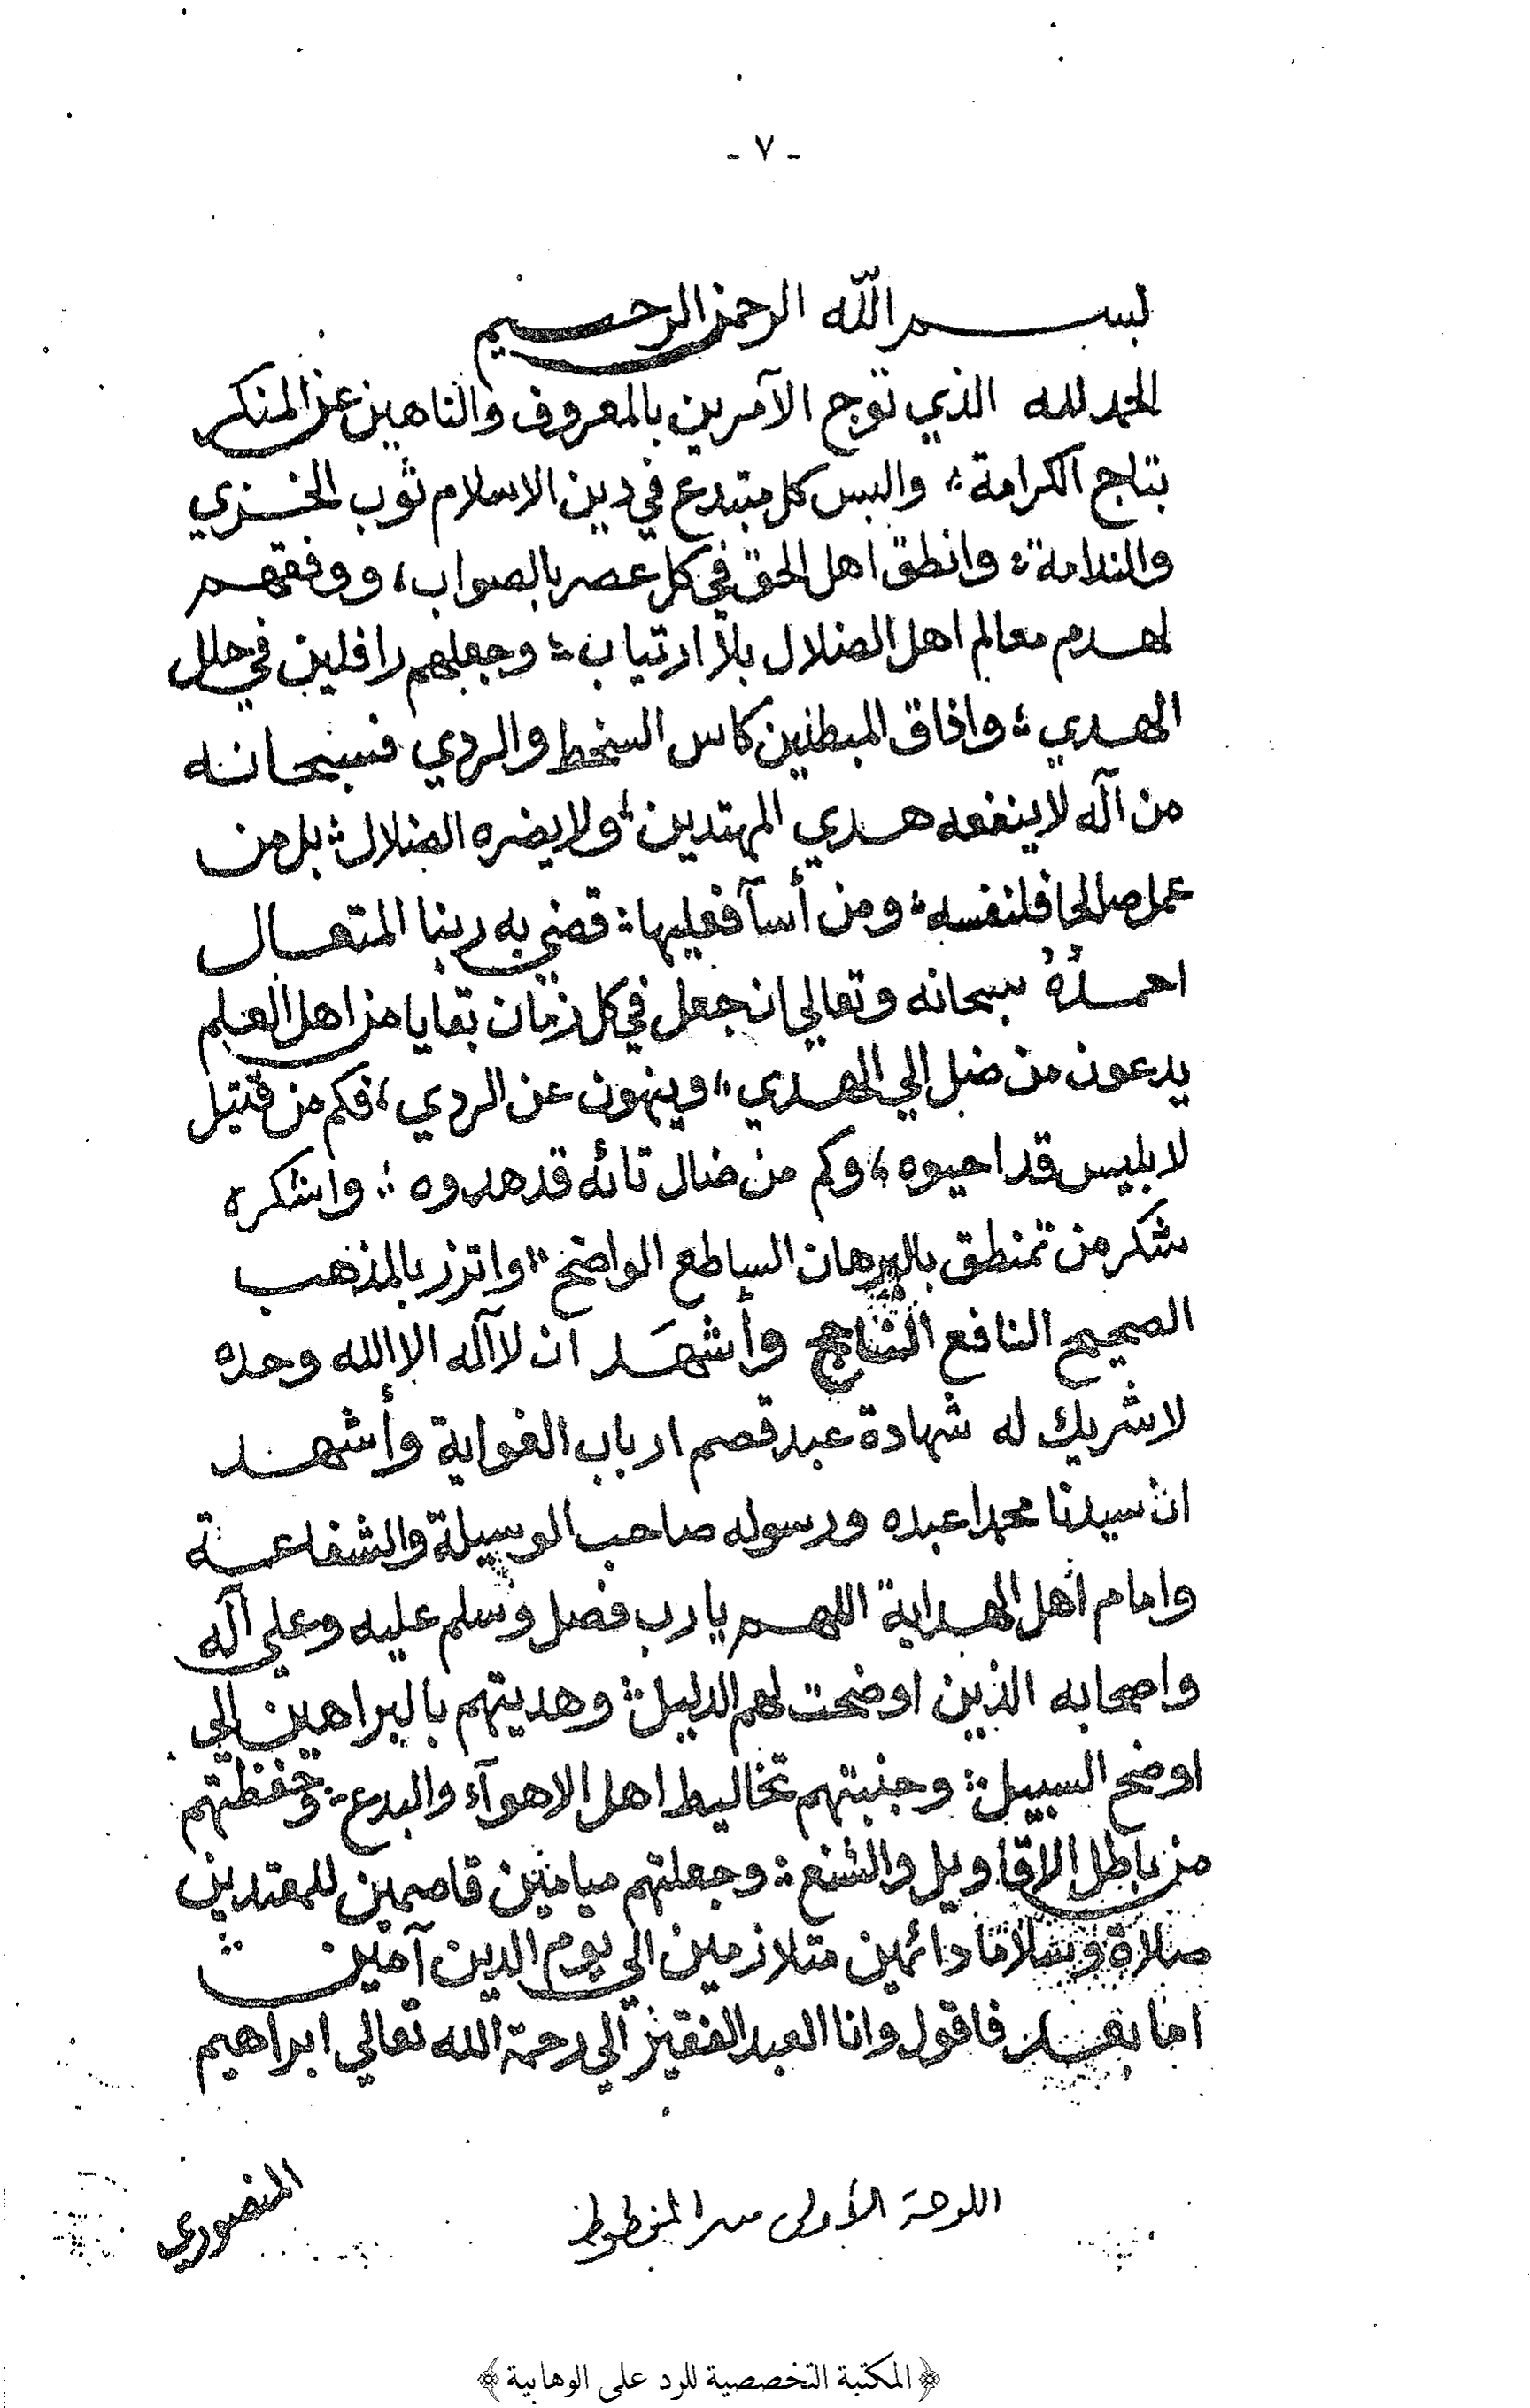 - ٧ -
بسم الله الرحمن الرحيم
الحمد لله الذي توج الآمرين بالمعروف والناهين عن المنكر
بتاج الكرامة ؛ والبس كل مبتدع في دين الاسلام ثوب الخزي
والندامة ؛ وانطق اهل الحق في كل عصر بالصواب ، ووفقهم
لهدم معالم اهل الضلال بلا ارتياب ؛ وجعلهم رافلين في حلل
الهدي ؛ واذاق المبطلين كاس السخط والردي فسبحانه
من آله لا ينفعه هدي المهتدين ؛ ولا يضره الضلال ؛ بل من
عمل صالحا فلنفسه ؛ ومن أسآ فعليها ؛ قضي به ربنا المتعال
احمدُهُ سبحانه وتعالي ان جعل في كل زمان بقايا من اهل العلم
يدعون من ضل الي الهدي ، وينهون عن الردي ، فكم من قتيل
لابليس قد احيوه ، وكم من ضال تائه قد هدوه ؛ واشكره
شكر من تمنطق بالبرهان الساطع الواضح ؛ واتزر بالمذهب
الصحيح النافع الناجح وأشهَد ان لا آله الا الله وحده
لا شريك له شهادة عبد قصم ارباب الغواية وأشهد
ان سيدنا محمدا عبده ورسوله صاحب الوسيلة والشفاعة
وامام اهل الهداية اللهم يا رب فصل وسلم عليه وعلي آله
واصحابه الذين اوضحت لهم الدليل ؛ وهديتهم بالبراهين الي
اوضح السبيل ؛ وجنبتهم تخاليط اهل الاهوآء والبدع ؛ وحفظتهم
من باطل الاقاويل والشنع ؛ وجعلتهم ميامين قاصمين للمعتدين
صلاة وسلاما دائمين متلازمين الي يوم الدين آمين
اما بعد فاقول وانا العبد الفقير الي رحمة الله تعالي ابراهيم
المنصوري
اللوحة الأولى من المخطوط
﴿المكتبة التخصصية للرد على الوهابية﴾